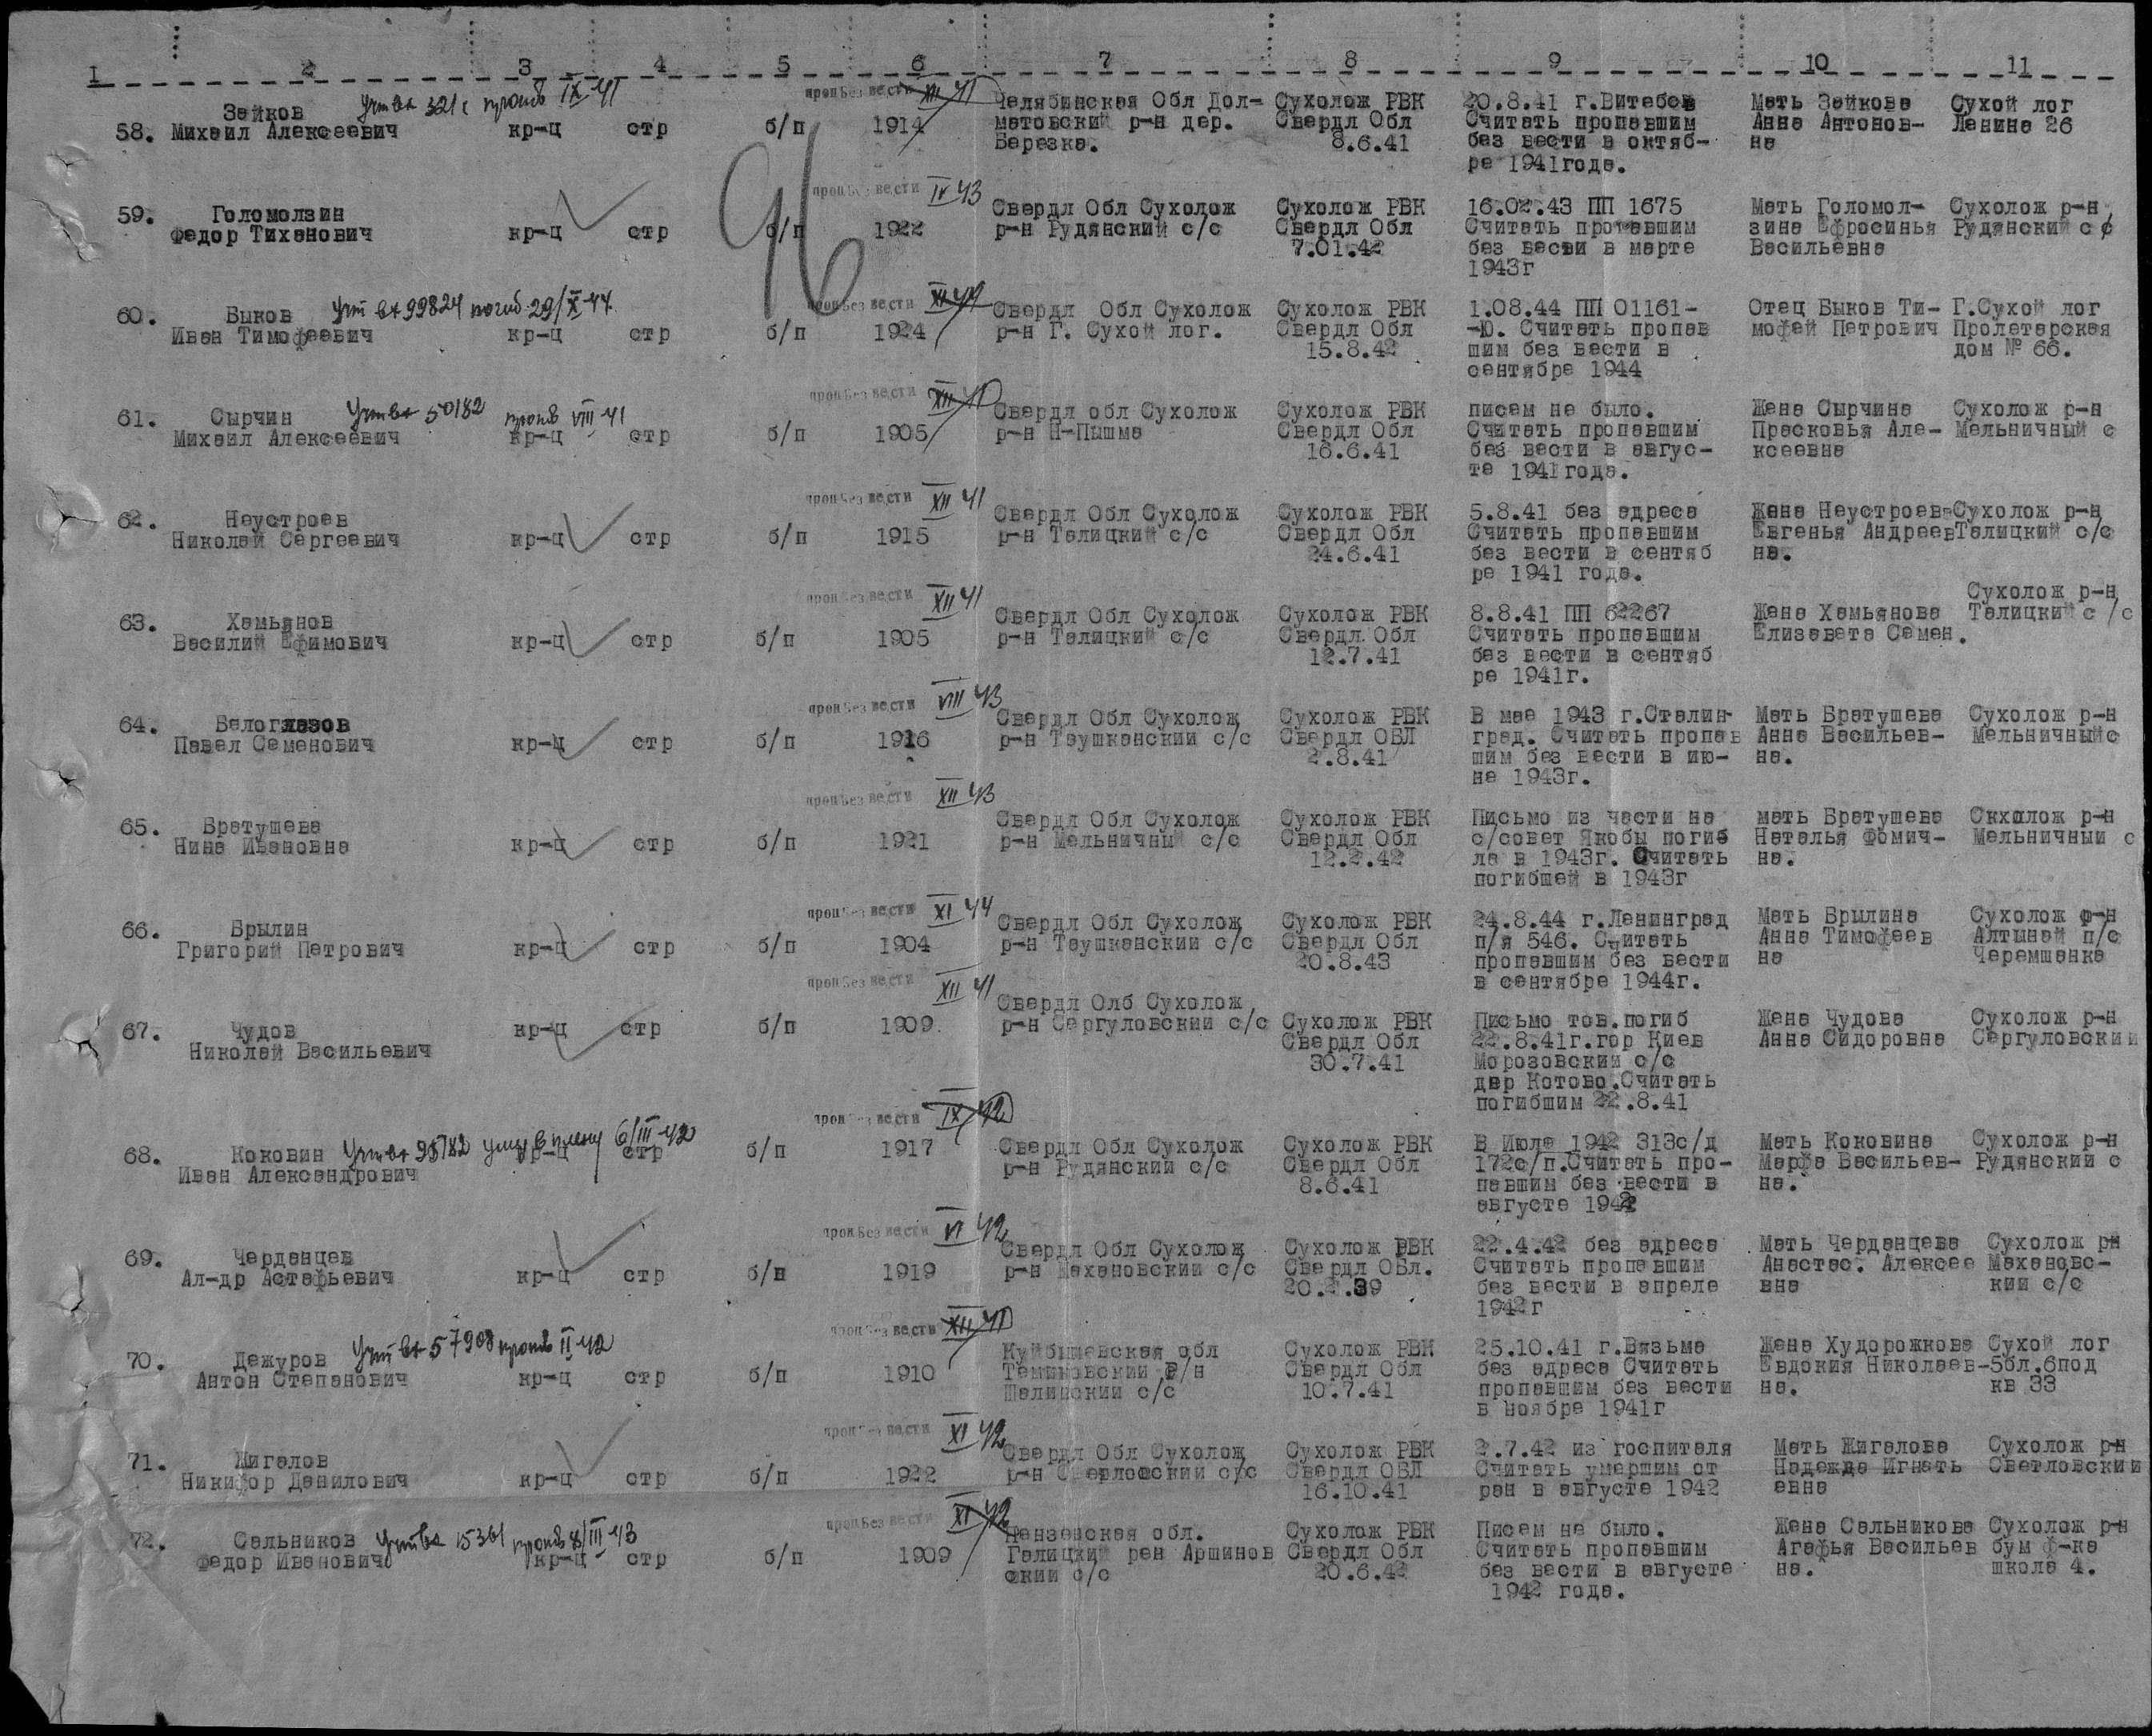 1 2 3 4 5 6 7 8 9 10 11
Зайков Учтен 321с пропб IX-41 проп без вести XII 41 Челябинская Обл Дол- Сухолож РВК 20.8.41 г.Витебск Мать Зайкова Сухой лог
58. Михаил Алексеевич кр-ц стр б/п 1914 матовский р-н дер. Свердл Обл Считать пропавшим Анна Антонов- Ленина 26
Березка. 8.6.41 без вести в октяб- на
ре 1941года.
96
проп без вести IV 43
59. Голомолзин Свердл Обл Сухолож Сухолож РВК 16.02.43 ПП 1675 Мать Голомол- Сухолож р-н
Федор Тиханович кр-ц стр б/п 1922 р-н Рудянский с/с Свердл Обл Считать пропавшим зина Ефросинья Рудянский с с
7.01.42 без вести в марте Васильевна
1943г
проп без вести XI 44
60. Быков Учт вх 99824 погиб 29/X-44 Свердл Обл Сухолож Сухолож РВК 1.08.44 ПП 01161- Отец Быков Ти- Г.Сухой лог
Иван Тимофеевич кр-ц стр б/п 1924 р-н Г. Сухой лог. Свердл Обл -Ю. Считать пропав мофей Петрович Пролетарская
15.8.42 шим без вести в дом № 66.
сентябре 1944
проп без вести XII 41
61. Сырчин Учт вх 50182 пропб VIII-41 Свердл обл Сухолож Сухолож РВК писем не было. Жена Сырчина Сухолож р-н
Михаил Алексеевич кр-ц стр б/п 1905 р-н Н-Пышма Свердл Обл Считать пропавшим Прасковья Але- Мельничный с
16.6.41 без вести в авгус- ксеевна
те 1941года.
проп без вести XII 41
62. Неустроев Свердл Обл Сухолож Сухолож РВК 5.8.41 без адреса Жена Неустроева Сухолож р-н
Николай Сергеевич кр-ц стр б/п 1915 р-н Талицкий с/с Свердл Обл Считать пропавшим Евгенья Андреев Талицкий с/с
24.6.41 без вести в сентяб на.
ре 1941 года.
проп без вести XII 41 Сухолож р-н
63. Хамьянов Свердл Обл Сухолож Сухолож РВК 8.8.41 ПП 62267 Жена Хамьянова Талицкий с/с
Василий Ефимович кр-ц стр б/п 1905 р-н Талицкий с/с Свердл Обл Считать пропавшим Елизавета Семен.
12.7.41 без вести в сентяб
ре 1941г.
проп без вести VIII 43
64. Белоглазов Свердл Обл Сухолож Сухолож РВК В мае 1943 г.Сталин- Мать Братушева Сухолож р-н
Павел Семенович кр-ц стр б/п 1916 р-н Таушканский с/с Свердл ОБЛ град. Считать пропав Анна Васильев- Мельничный с
2.8.41 шим без вести в ию- на.
не 1943г.
проп без вести XII 43
65. Братушева Свердл Обл Сухолож Сухолож РВК Письмо из части на мать Братушева Скхолож р-н
Нина Ивановна кр-ц стр б/п 1921 р-н Мельничный с/с Свердл Обл с/совет Якобы погиб Наталья Фомич- Мельничный с
12.2.42 ла в 1943г. Считать на.
погибшей в 1943г
проп без вести XI 44
66. Брылин Свердл Обл Сухолож Сухолож РВК 24.8.44 г.Ленинград Мать Брылина Сухолож р-н
Григорий Петрович кр-ц стр б/п 1904 р-н Таушканский с/с Свердл Обл п/я 546. Считать Анна Тимофеев Алтынай п/с
20.8.43 пропавшим без вести на Черемшанка
в сентябре 1944г.
проп без вести XII 41 Свердл Олб Сухолож
67. Чудов кр-ц стр б/п 1909 р-н Сергуловский с/с Сухолож РВК Письмо тов.погиб Жена Чудова Сухолож р-н
Николай Васильевич Свердл Обл 22.8.41г.гор Киев Анна Сидоровна Сергуловский
30.7.41 Морозовский с/с
дер Котово.Считать
погибшим 22.8.41
проп без вести IX 42
68. Коковин Учт вх 95182 умер в плену 6/III-42 кр-ц стр б/п 1917 Свердл Обл Сухолож Сухолож РВК В Июле 1942 313с/д Мать Коковина Сухолож р-н
Иван Александрович р-н Рудянский с/с Свердл Обл 172с/п.Считать про- Марфа Васильев- Рудянский с
8.6.41 павшим без вести в на.
августе 1942
проп без вести VI 42
69. Черданцев Свердл Обл Сухолож Сухолож РВК 22.4.42 без адреса Мать Черданцева Сухолож рн
Ал-др Астафьевич кр-ц стр б/п 1919 р-н Махановский с/с Свердл Обл. Считать пропавшим Анастас. Алексее Махановс-
20.2.39 без вести в апреле вна кий с/с
1942г
проп без вести XII 41
70. Дежуров Учт вх 57908 пропб II-42 Куйбышевская обл Сухолож РВК 25.10.41 г.Вязьма Жена Худорожкова Сухой лог
Антон Степанович кр-ц стр б/п 1910 Темниковский Р/н Свердл Обл без адреса Считать Евдокия Николаев- 5бл.6под
Шалинский с/с 10.7.41 пропавшим без вести на. кв 33
в ноябре 1941г
проп без вести XI 42
71. Жигалов Свердл Обл Сухолож Сухолож РВК 2.7.42 из госпиталя Мать Жигалова Сухолож рн
Никифор Данилович кр-ц стр б/п 1922 р-н с/с Свердл ОБЛ Считать умершим от Надежда Игнать Светловский
16.10.41 ран в августе 1942 евна
проп без вести XI 42
72. Сальников Учтен 15361 пропб 8/III-43 Пензенская обл. Сухолож РВК Писем не было. Жена Сальникова Сухолож рн
Федор Иванович кр-ц стр б/п 1909 Галицкий рен Аршинов Свердл Обл Считать пропавшим Агафья Васильев бум ф-ка
ский с/с 20.6.42 без вести в августе на. школа 4.
1942 года.